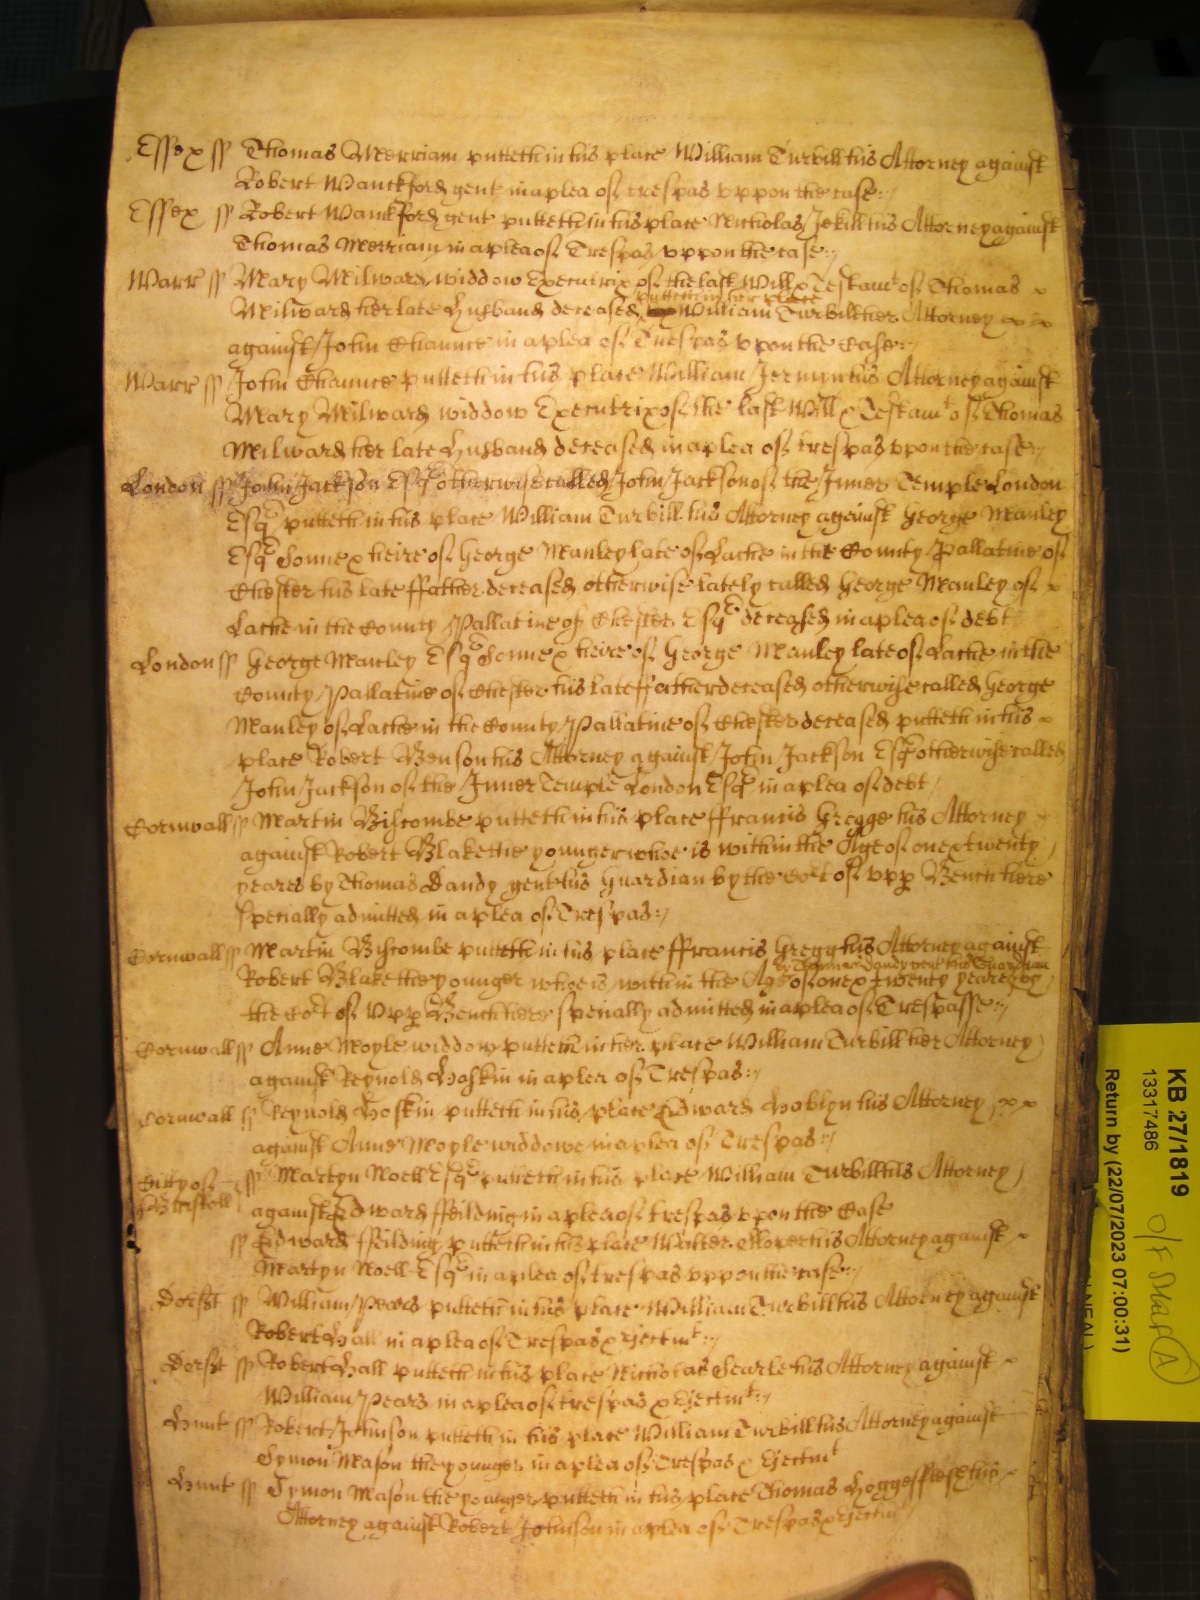 Essex ss Thomas Merriam putteth in his place William Turbill his Attorney against
Robert Wanckford gent in a plea of trespas vppon the case
Essex ss Robert Wanckford gent putteth in his place Nicholas Jekill his Attorney against
Thomas Merriam in a plea of Trespas vppon the case
Warr ss Mary Milward widdow Executrix of the last Will & Testamt of Thomas
putteth in her place
Milward her late Husband deceased William Turbill her Attorney
against John Chaunce in a plea of Trespas vpon the Case
Warr ss John Chaunce putteth in his place William Jermyn his Attorney against
Mary Milward widdow Executrix of the last Will & Testamt of Thomas
Milward her late Husband deceased in a plea of trespas vpon the case
London ss John Jackson Esqr otherwise called John Jackson of the Inner Temple London
Esqr putteth in his place William Turbill his Attorney against George Manley
Esqr Sonne & heire of George Manley late of Lache in the County Pallatine of
Chester his late ffather deceased otherwise lately called George Manley of
Lache in the County Pallatine of Chester Esqr deceased in a plea of debt
London ss George Manley Esqr Sonne & heire of George Manley late of Lache in the
County Pallatine of Chester his late ffather deceased otherwise called George
Manley of Lache in the County Pallatine of Chester deceased putteth in his
place Robert Benson his Attorney against John Jackson Esqr otherwise called
John Jackson of the Inner Temple London Esqr in a plea of debt
Cornwall ss Martin Biscombe putteth in his place ffrancis Gregge his Attorney
against Robert Blake the younger whoe is within the Age of one & twenty
yeares by Thomas Dandy gent his Guardian by the Cort of vpp Bench here
specially admitted in a plea of Trespas
Cornwall ss Martin Biscombe putteth in his place ffrancis Gregg his Attorney against
by Thomas Dandy gent his Guardian
Robert Blake the younger whoe is within the Age of one & twenty yeares by
the Cort of Vpp Bench here specially admitted in a plea of Trespasse
Cornwall ss Anne Moyle widdow putteth in her place William Turbill her Attorney
against Reynold Hoskin in a plea of Trespas
Cornwall ss Reynold Hoskin putteth in his place Edward Hoblyn his Attorney
against Anne Moyle widdowe in a plea of Trespas
Citty of
Bristoll ss Martyn Noell Esqr putteth in his place William Turbill his Attorney
against Edward ffeilding in a plea of trespas vpon the Case
ss Edward ffeilding putteth in his place Walter his Attorney against
Martyn Noell Esqr in a plea of trespas vppon the case
Dorset ss William Pears putteth in his place William Turbill his Attorney against
Robert Hall in a plea of Trespas & Ejectmt
Dorset ss Robert Hall putteth in his place Nicholas Searle his Attorney against
William Pears in a plea of trespas & Ejectmt
Hunt ss Robert Johnson putteth in his place William Turbill his Attorney against
Symon Mason the younger in a plea of Trespas & Ejectmt
Hunt ss Symon Mason the younger putteth in his place Thomas Hoggeflesh his
Attorney against Robert Johnson in a plea of Trespas & Ejectmt
KB 27/1819
13317486
Return by (22/07/2023 07:00:31)
A